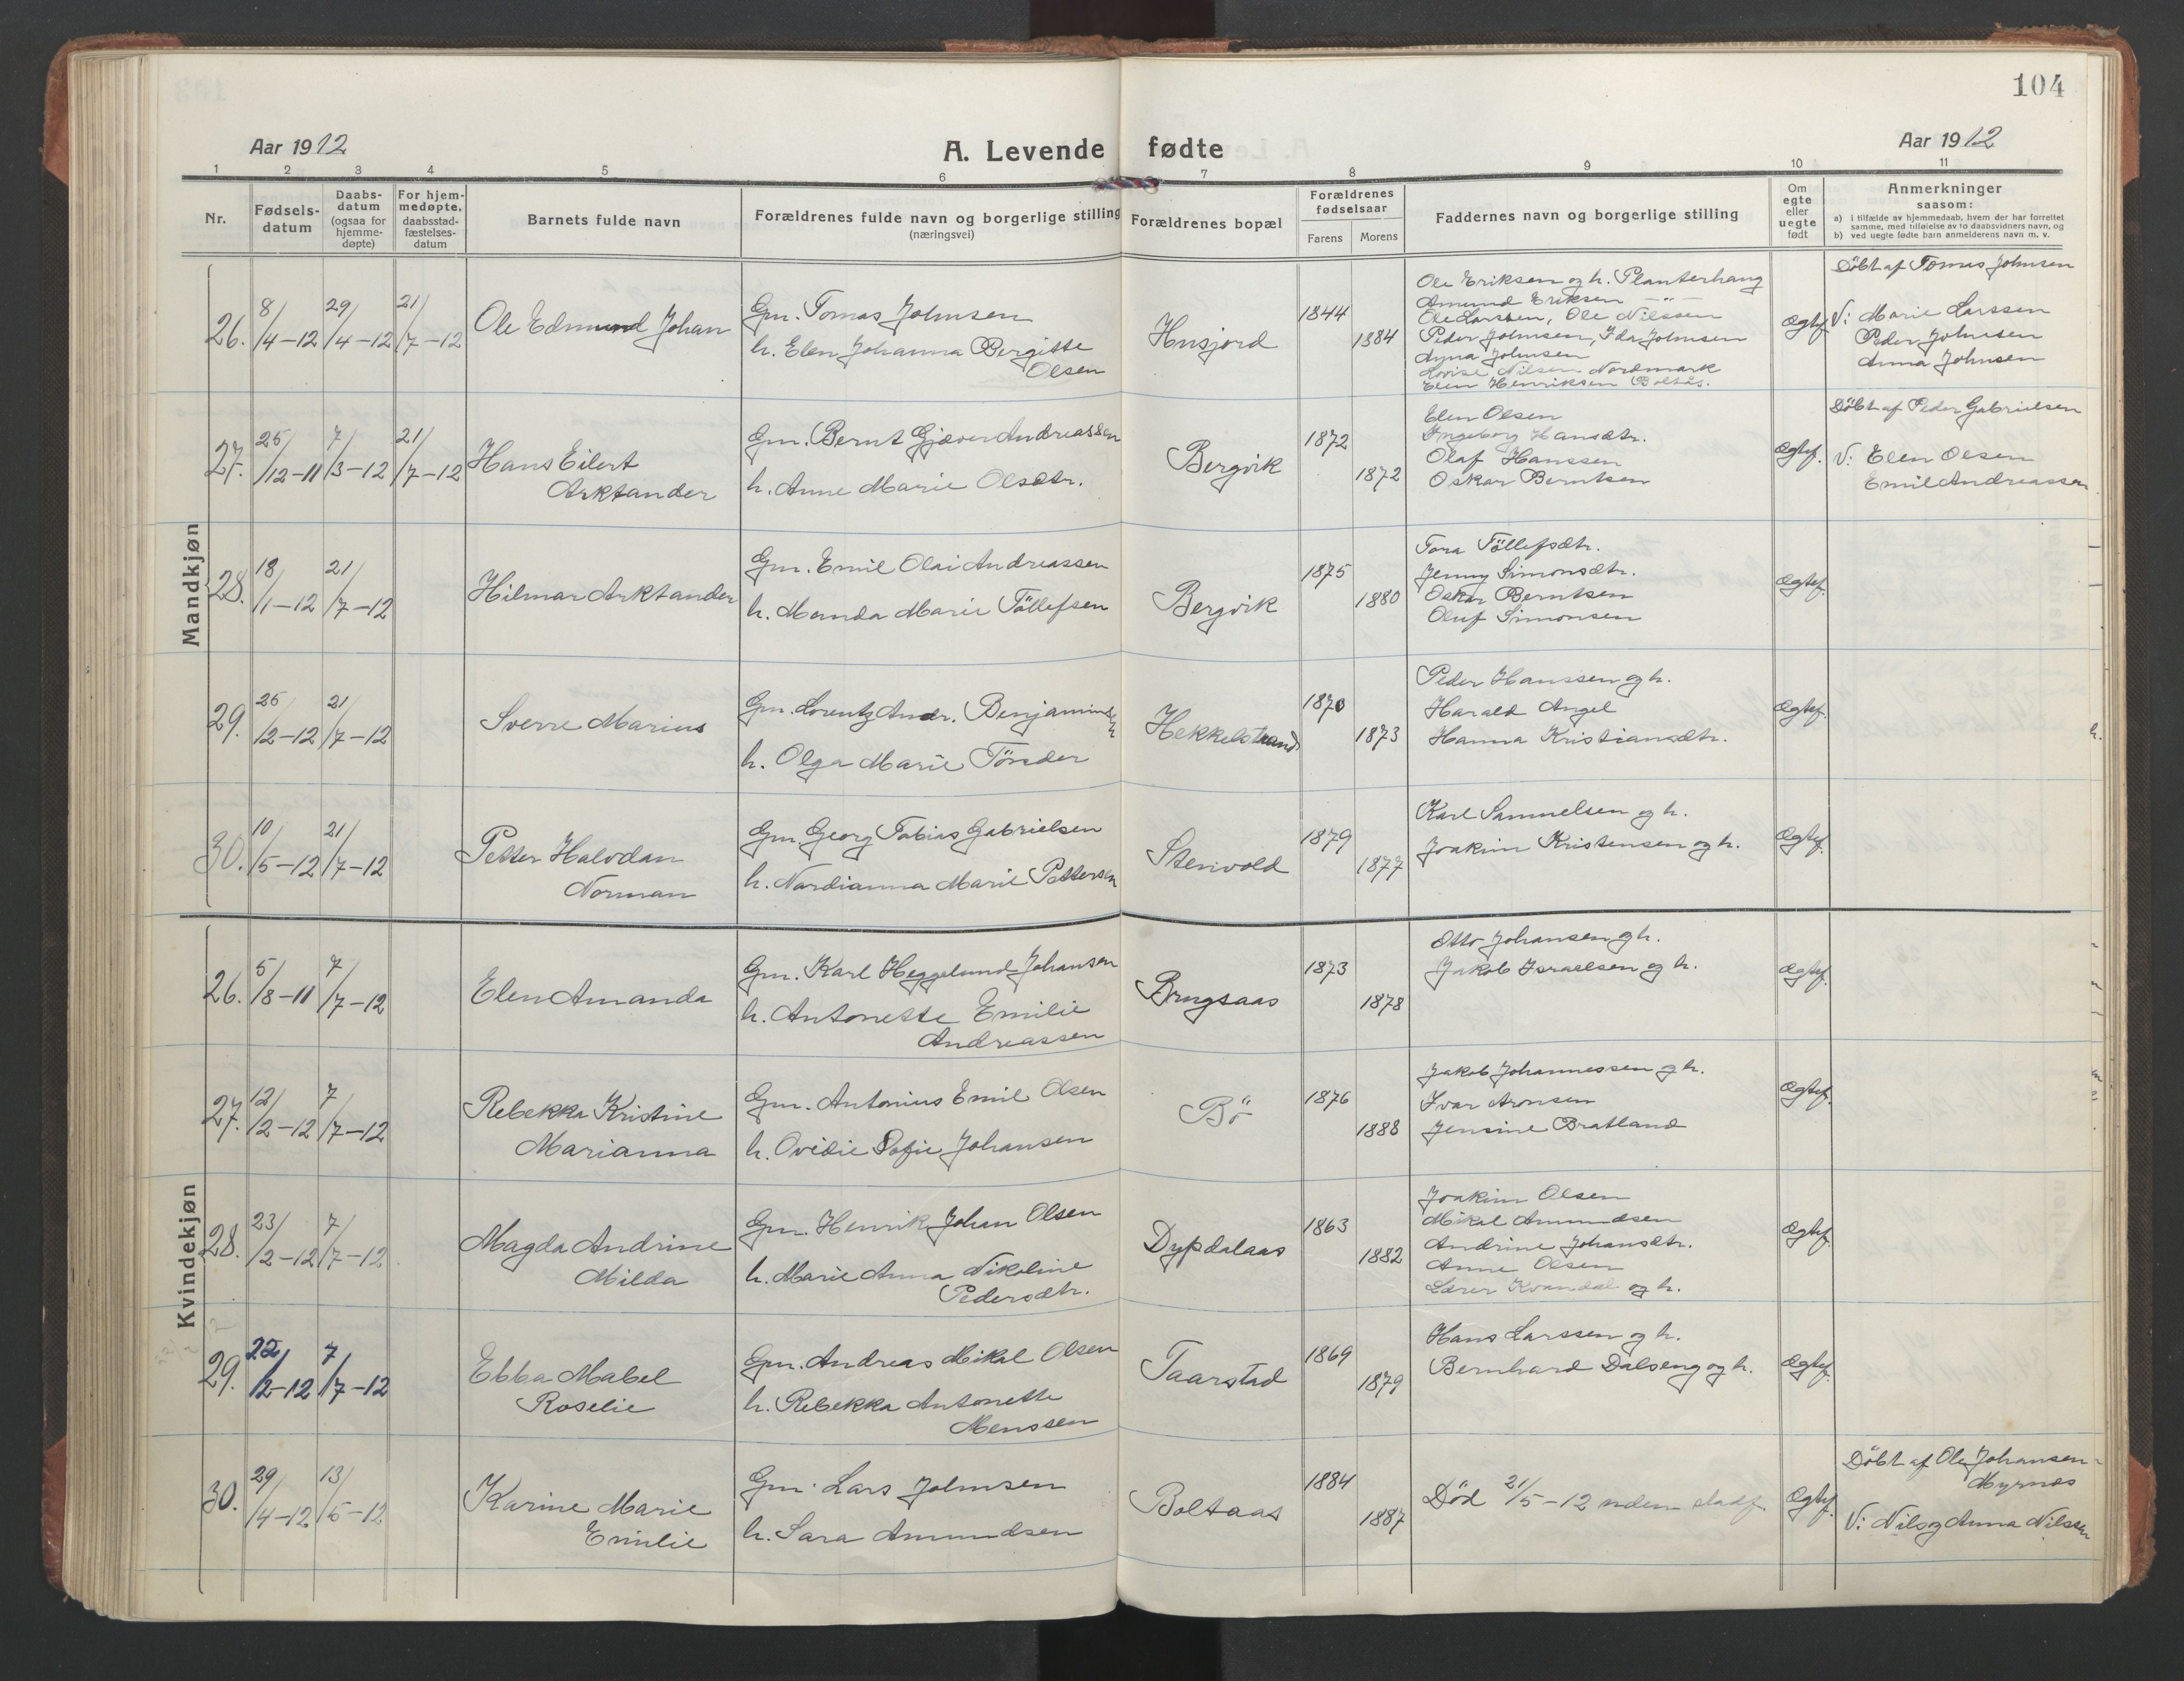 104
Aar 1912
A. Levende fødte
Aar 1912
1 2 3 4 5 6 7 8 9 10 11
Nr.
Fødsels-
datum
Daabs-
datum
(ogsaa for
hjemme-
døpte)
For hjem-
medøpte,
daabsstad-
fæstelses-
datum
Barnets fulde navn
Forældrenes fulde navn og borgerlige stilling
(næringsvei)
Forældrenes bopæl
Forældrenes
fødselsaar
Farens Morens
Faddernes navn og borgerlige stilling
Om
egte
eller
uegte
født
Anmerkninger
saasom:
a) i tilfælde av hjemmedaab, hvem der har forrettet
samme, med tilføielse av to daabsvidners navn, og
b) ved uegte fødte barn anmelderens navn m. v.
Mandkjøn
26. 8/4-12 29/4-12 21/7-12
Ole Edmund Johan
Gm. Tomas Johnsen
h. Elen Johanna Bergitte
Olsen
Husjord
1844
1884
Ole Eriksen og h. Planterhaug
Amund Eriksen — " —
Ole Larssen, Ole Nilssen
Peder Johnsen, Ida Johnsen
Anna Johnsen
Lovise Nilsen Nordmark
Elen Henriksen Boltås.
Ægtef.
Döbt af Tomas Johnsen
V: Marie Larssen
Peder Johnsen
Anna Johnsen
27. 25/12-11 7/3-12 21/7-12
Hans Eilert
Arktander
Gm. Bernt Gjæver Andreassen
h. Anne Marie Olsdtr.
Bergvik
1872
1872
Elen Olsen
Ingeborg Hansdtr.
Olaf Hanssen
Oskar Berntsen
Ægtef.
Döbt af Peder Gabrielsen
V: Elen Olsen
Emil Andreassen
28. 18/1-12 21/7-12
Hilmar Arktander
Gm. Emil Olai Andreassen
h. Manda Marie Töllefsen
Bergvik
1875
1880
Tora Töllefsdtr.
Jenny Simonsdtr.
Oskar Berntsen
Oluf Simonsen
Ægtef.
29. 25/2-12 21/7-12
Sverre Marius
Gm. Lorentz Andr. Benjaminsen
h. Olga Marie Tönder
Hekkelstrand
1870
1873
Peder Hanssen og h.
Harald Angel
Hanna Kristiansdtr.
Ægtef.
30. 10/5-12 21/7-12
Petter Halvdan
Norman
Gm. Georg Tobias Gabrielsen
h. Nordianna Marie Pettersen
Stenvold
1879
1877
Karl Samuelsen og h.
Joakim Kristensen og h.
Ægtef.
Kvindekjøn
26. 5/8-11 7/7-12
Elen Amanda
Gm. Karl Heggelund Johansen
h. Antonette Emilie
Andreassen
Brugsaas
1873
1878
Otto Johansen og h.
Jakob Israelsen og h.
Ægtef.
27. 12/2-12 7/7-12
Rebekka Kristine
Marianna
Gm. Antonius Emil Olsen
h. Ovidie Sofie Johansen
Bö
1876
1888
Jakob Johannessen og h.
Ivar Aronsen
Jensine Bratland
Ægtef.
28. 23/2-12 7/7-12
Magda Andrine
Milda
Gm. Henrik Johan Olsen
h. Marie Anna Nikoline
Pedersdtr.
Dypdalaas
1863
1882
Joakim Olsen
Mikal Amundsen
Andrine Johansdtr.
Anne Olsen
Lærer Kvandal og h.
Ægtef.
29. 22/2-12 7/7-12
Ebba Mabel
Roselie
Gm. Andreas Mikal Olsen
h. Rebekka Antonette
Monssen
Taarstad
1869
1879
Hans Larssen og h.
Bernhard Dalseng og h.
Ægtef.
30. 29/4-12 13/5-12
Karine Marie
Emilie
Gm. Lars Johnsen
h. Sara Amundsen
Boltaas
1884
1887
Död 21/5-12 uden stadf.
Ægtef.
Döbt af Ole Johansen-
Myrnes
V: Nils og Anna Nilssen